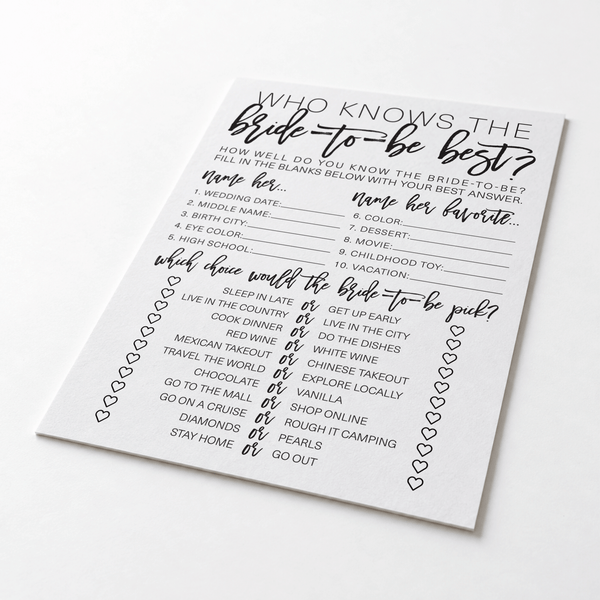 WHO KNOWS THE
bride-to-be best?
HOW WELL DO YOU KNOW THE BRIDE-TO-BE?
FILL IN THE BLANKS BELOW WITH YOUR BEST ANSWER.
name her...
1. WEDDING DATE:
2. MIDDLE NAME:
3. BIRTH CITY:
4. EYE COLOR:
5. HIGH SCHOOL:
name her favorite...
6. COLOR:
7. DESSERT:
8. MOVIE:
9. CHILDHOOD TOY:
10. VACATION:
which choice would the bride-to-be pick?
SLEEP IN LATE or GET UP EARLY
LIVE IN THE COUNTRY or LIVE IN THE CITY
COOK DINNER or DO THE DISHES
RED WINE or WHITE WINE
MEXICAN TAKEOUT or CHINESE TAKEOUT
TRAVEL THE WORLD or EXPLORE LOCALLY
CHOCOLATE or VANILLA
GO TO THE MALL or SHOP ONLINE
GO ON A CRUISE or ROUGH IT CAMPING
DIAMONDS or PEARLS
STAY HOME or GO OUT